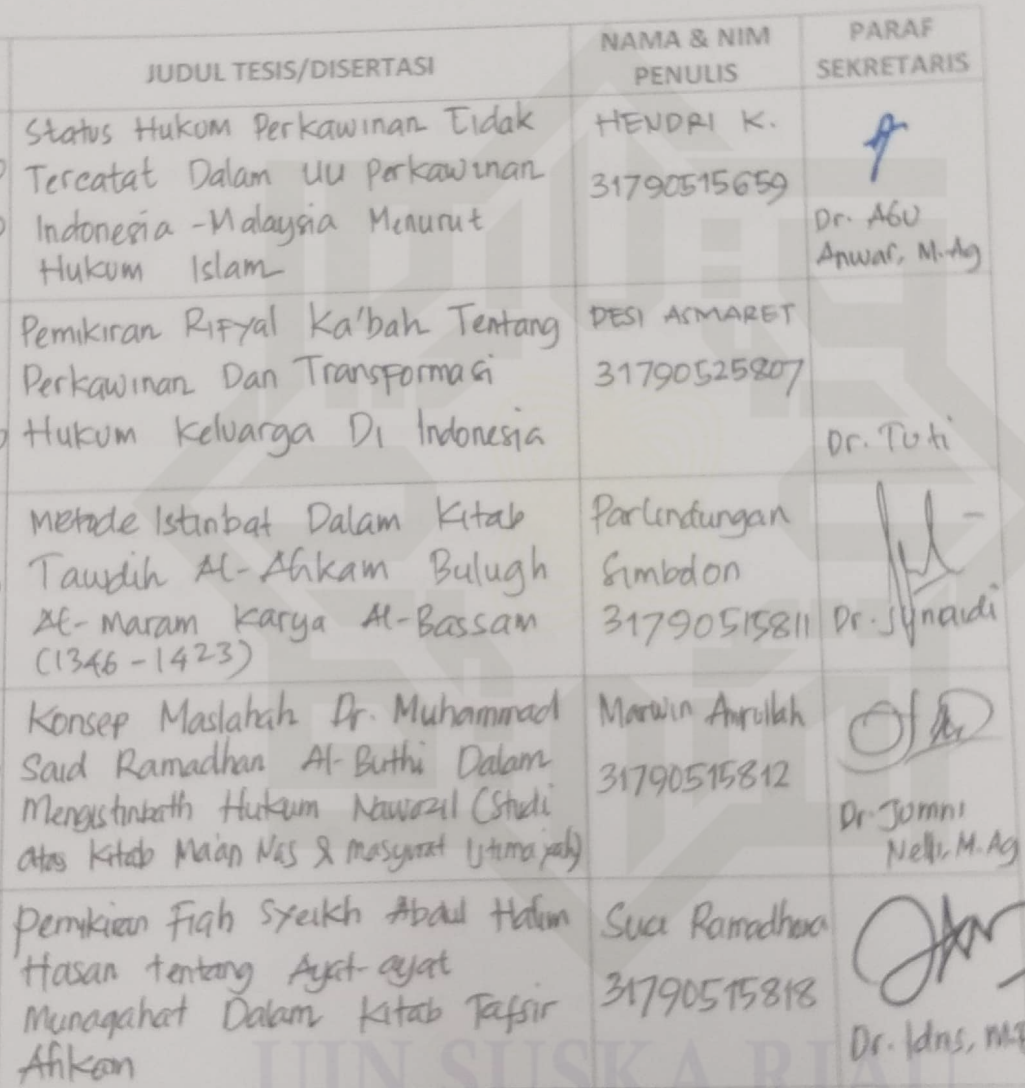 JUDUL TESIS/DISERTASI
NAMA & NIM
PENULIS
PARAF
SEKRETARIS
Status Hukum Perkawinan Tidak
Tercatat Dalam UU Perkawinan
Indonesia - Malaysia Menurut
Hukum Islam
HENDRI K.
31790515659
Dr. Abu
Anwar, M.Ag
Pemikiran Rifyal Ka'bah Tentang
Perkawinan Dan Transformasi
Hukum Keluarga Di Indonesia
DESI ASMARET
31790525807
Dr. Tuti
Metode Istinbat Dalam Kitab
Taudih Al-Ahkam Bulugh
Al-Maram Karya Al-Bassam
(1346-1423)
Parlindungan
Simbolon
31790515811
Dr. Junaidi
Konsep Maslahah Dr. Muhammad
Said Ramadhan Al-Buthi Dalam
Mengistinbath Hukum Nawazil (Studi
atas Kitab Ma'an Nas &
Marwin Amrullah
31790515812
Dr. Jumni
Nelli, M.Ag
Pemikiran Fiqh Syeikh Abdul Halim
Hasan tentang Ayat-ayat
Munaqahat Dalam Kitab Tafsir
Ahkam
Suci Ramadhona
31790515818
Dr. Idris,
UIN SUSKA RIAU